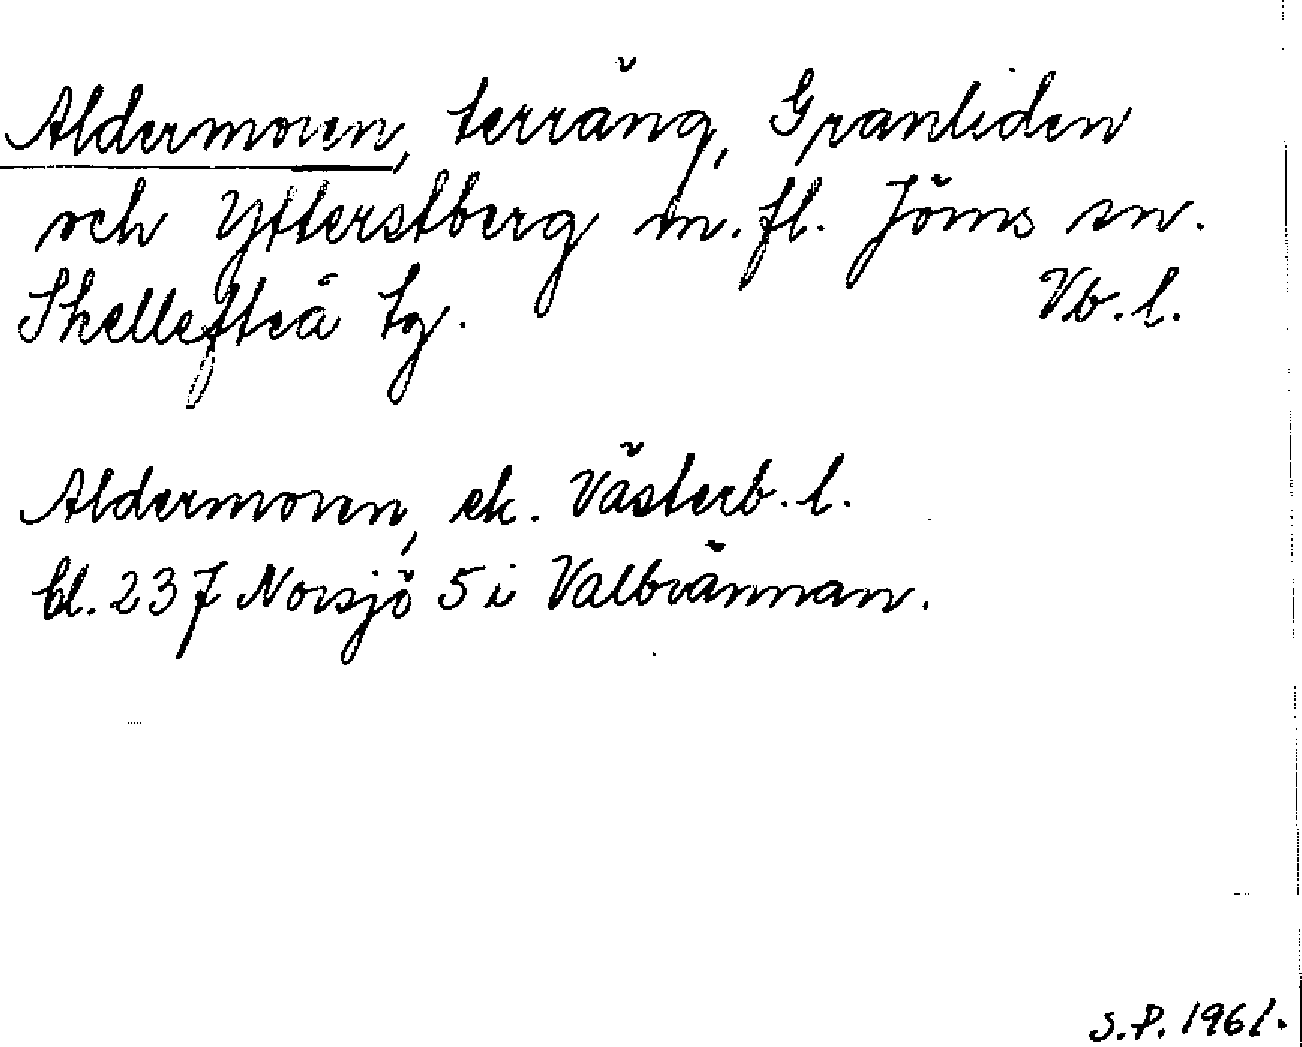 Aldermoren, terräng, Granliden
och Ytterstberg m. fl. Jörns sn.
Skellefteå tg. Vb. l.
Aldermoren, ek. Västerb. l.
bl. 237 Norsjö 5 i Valbrännan.
S.P. 1961.